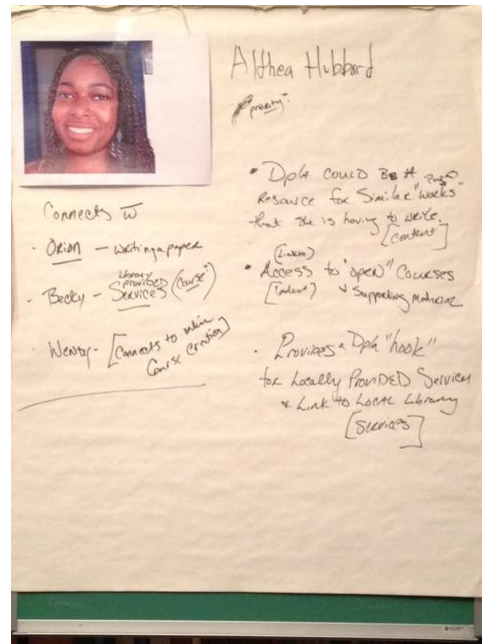 Althea Hubbard
priority:
Connects w
· Orion - writing a paper
Library
provided
· Becky - Services (Course)
· Wendy - [Connects to online
Course Creation]
• Dpla could Be A
Resource for Similar "works"
that she is having to write.
[content]
(Links)
• Access to "open" Courses
[content] & Supporting material
· Provides a Dpla "hook"
for Locally Provided Services
& Link to Local Library
[Services]